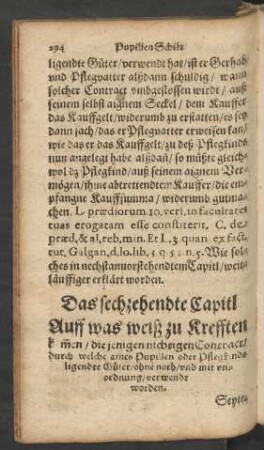 294 Pupillen Schilt
ligende Güter/verwendt hat/ist er Gerhab
vnd Pflegvatter alßdann schuldig/wann
solcher Contract vmbgestossen wirdt/auß
seinem selbst aignem Seckel/dem Kauffer
das Kauffgelt/widerumb zu erstatten/es sey
dann sach/das er Pflegvatter erweisen kan/
wie das er das Kauffgelt/zu deß Pflegkinds
nutz angelegt habe alßdañ/so müßte gleich-
wol dz Pflegkind/auß seinem aignem Ver-
mögen/ihme abtrettendtem Kauffer/die em-
pfangne Kauffsumma/widerumb gutma-
chen. L. prædiorum. 10. veri. to facultates
tuas erogatam esse constiterit. C. de
præd. & al. reb. min. Et L. 3. quan. ex fact.
tut. Galgan. d. lo. lib. n. 5. Wie sol-
ches in nechstanuorstehendtem Capitl/weit-
läuffiger erklärt worden.
Das sechzehendte Capitl
Auff was weiß zu Krefften
die jenigen nichtigen Contract/
durch welche aines Pupillen oder Pflegkinds
ligendte Güter/ohne noth/vnd mit vn-
ordnung/verwendt
worden.